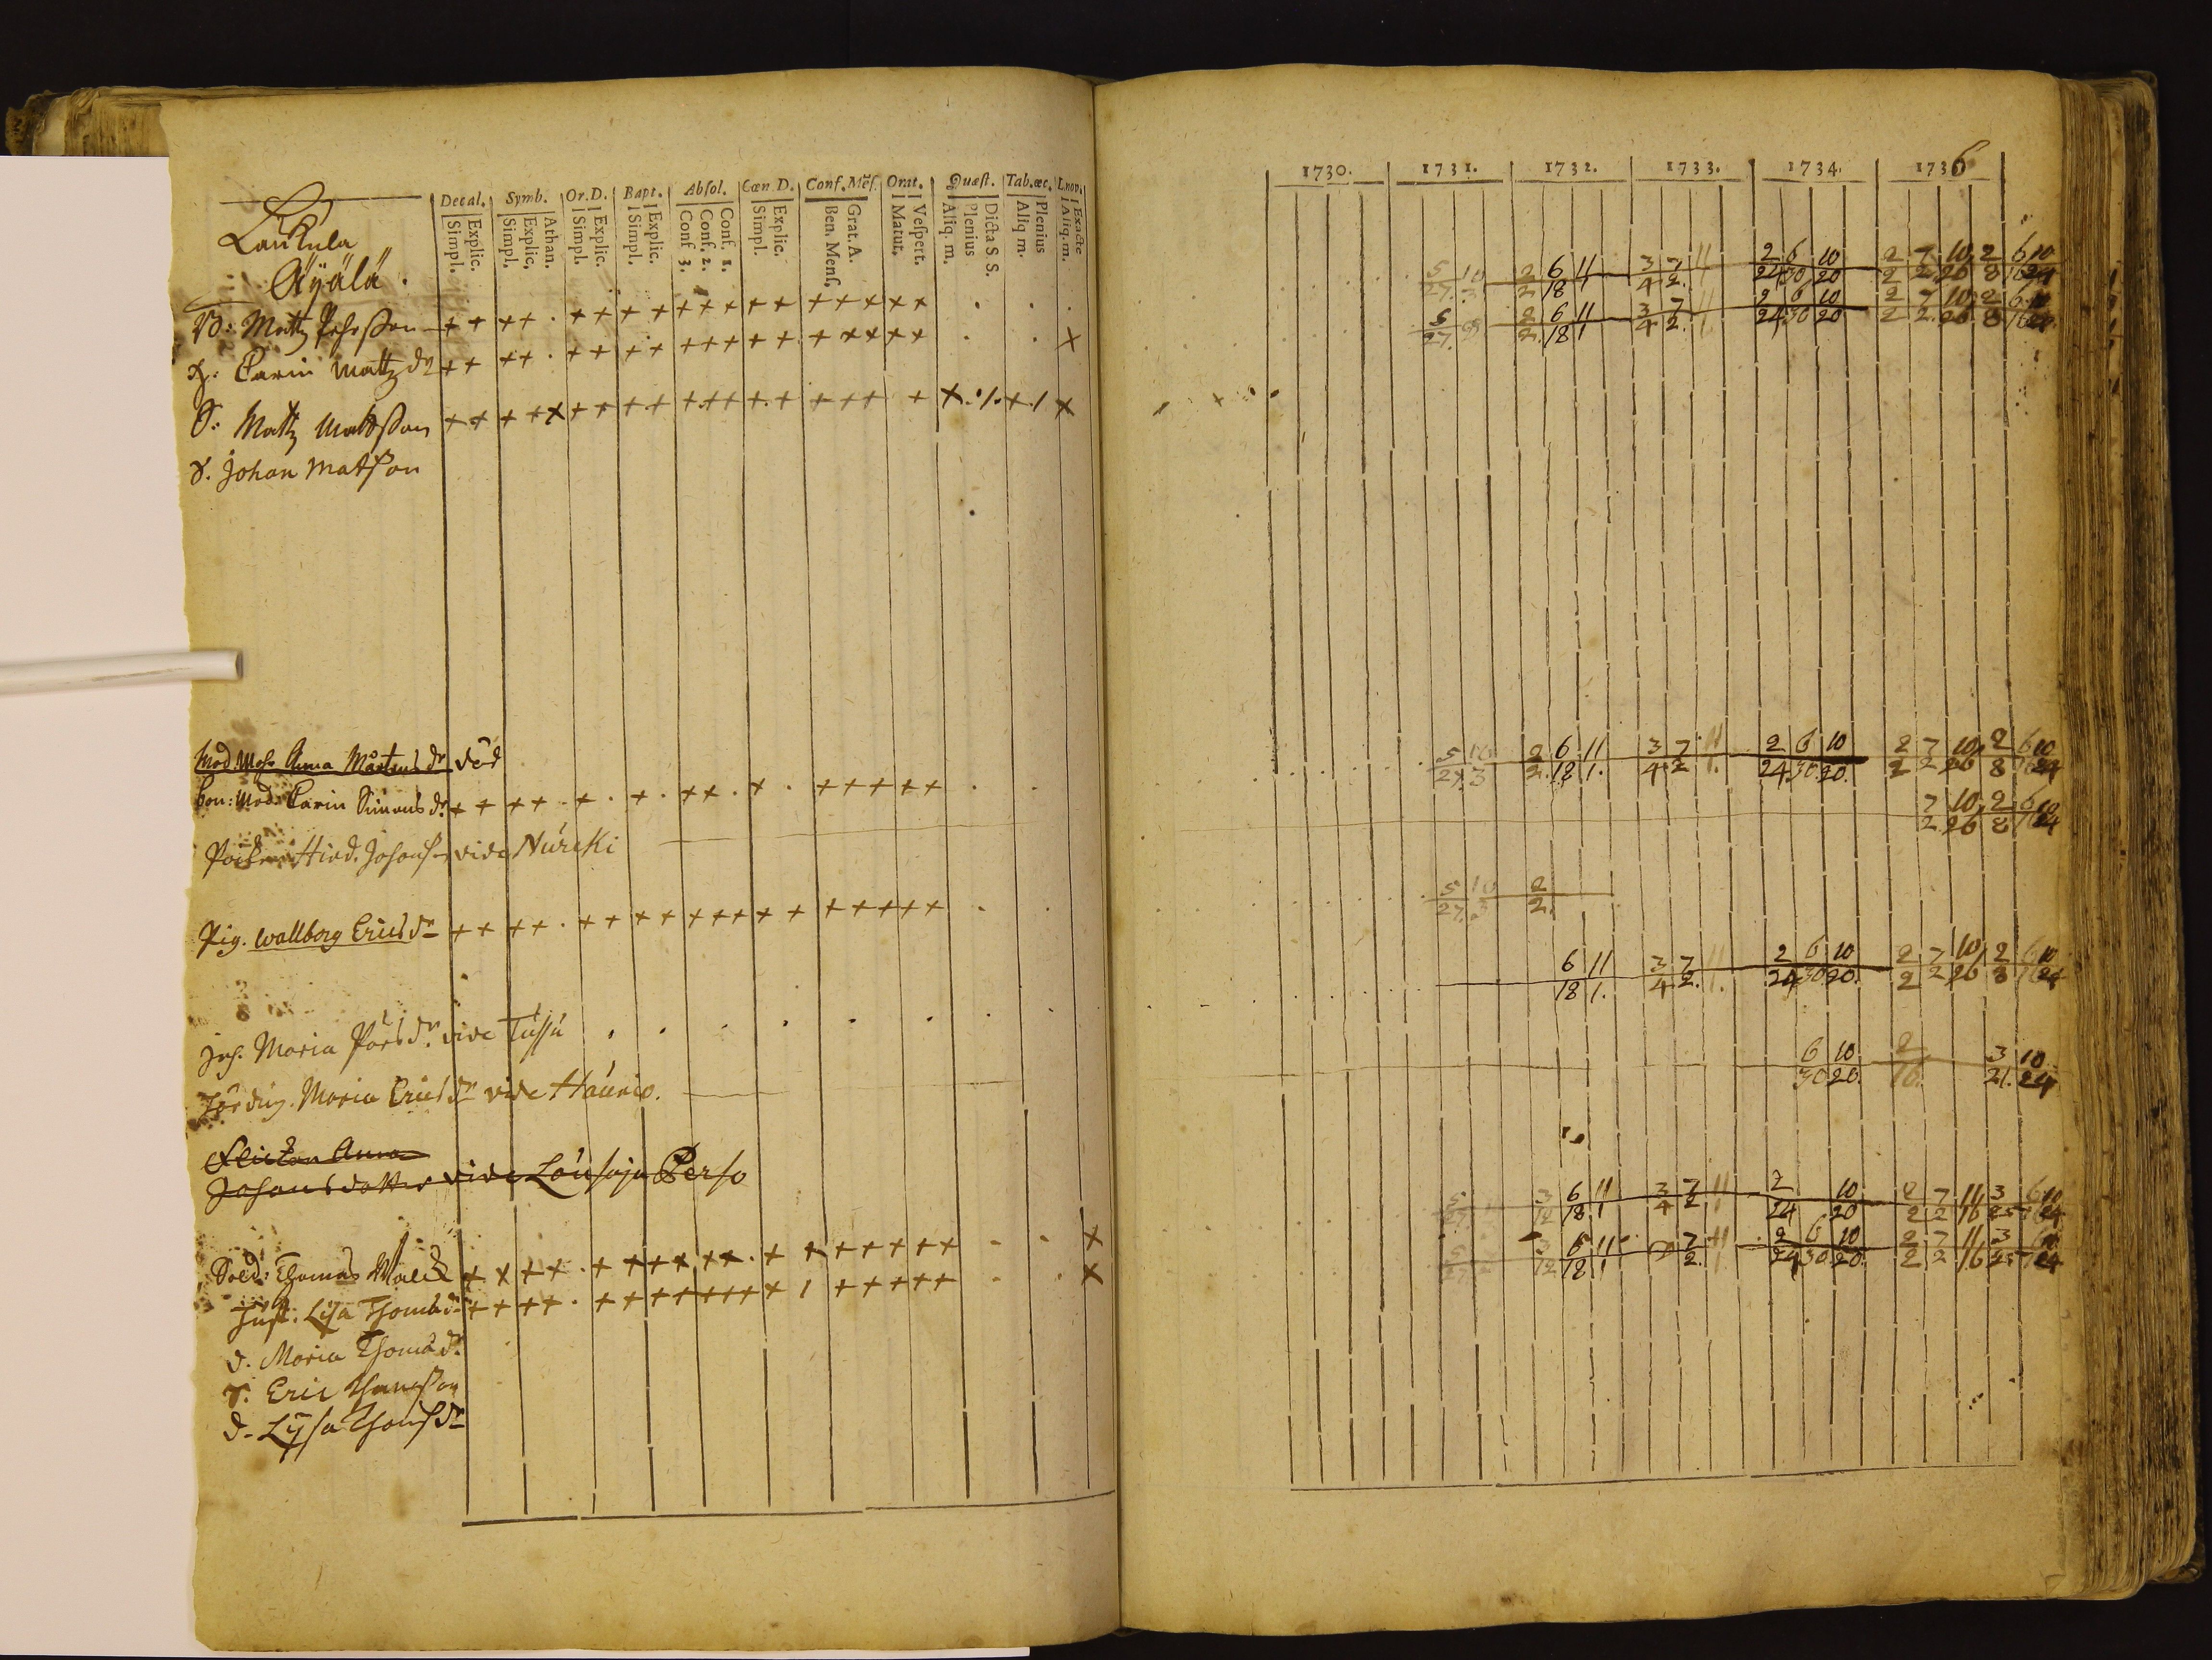 Decal. Symb. Or. D. Bapt. Absol. Cœn. D. Conf. Mẽs. Orat. Quæst. Tab. œc. L. nov.
Simpl. Explic. Simpl. Explic. Athan. Simpl. Explic. Simpl. Explic. Conf. 3. Conf. 2. Conf. 1. Simpl. Explic. Ben. Mens. Grat. A. Matut. Vespert. Aliq. m. Plenius Dicta S S. Aliq m. Plenius Aliq. m. Exacte
Laukula
Äÿälä.
B: Mattz Pehrsson
H: Carin Mattz dr
S: Mattz Mattsson
S. Johan Matsson
Mod. Anna Mårtens dr död
Mod: Carin Simons dr
Hind. Johans vide Nurcki
Pig. Wallborg Erics dr
Inh. Maria Pärs dr vide Tussu
Maria Erics dr vide Haurio.
Flickan Anna
Johansdotter vide Lausoja Perso
Sold: Thomas Malck
Hust. Lisa Thomæ dr
d. Maria Thomæ dr
S. Eric Thomsson
d. Lÿsa Thoms dr
1730. 1731. 1732. 1733. 1734. 1736
5 10 2 6 11 3 7 11 2 6 10 2 7 10 2 6 10
27. 3 2. 18 1 4 2. 1 24 30 20 2 2 26 8 16 24
5 2 6 11 3 7 11 2 6 10 2 7 10 2 6 10
27. 2. 18 1 4 2. 1. 24 30 20 2 2. 26 8 16 24
5 10 2 6 11 3 7 11 2 6 10 2 7 10 2 6 10
27. 3 2. 18 1. 4. 2 1. 24 30 20. 2 2 26 8 16 24
7 10 2 6 10
2 26 8 16 24
5 10 2
27. 3 2.
6 11 3 7 11 2 6 10 2 7 10 2 6 10
18 1. 4. 2. 1. 24 30 20. 2 2 26 8 16 24
6 10 2 3 10
30 20. 16. 21. 24
5 3 6 11 3 7 11 2 10 2 7 11 3 6 10
27. 12 18 1 4 2 1 24 20 2 2 16 25 16 24
5 3 6 11 7 11 2 6 10 2 7 11 3 6 10
27. 12 18 1 2. 1 24 30 20. 2 2 16 25 16 24